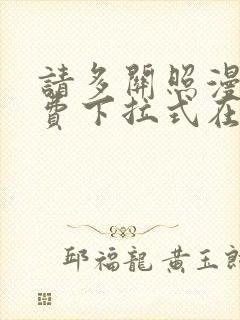 請多關照漫
費下拉式在
邱福龍 黃玉郎